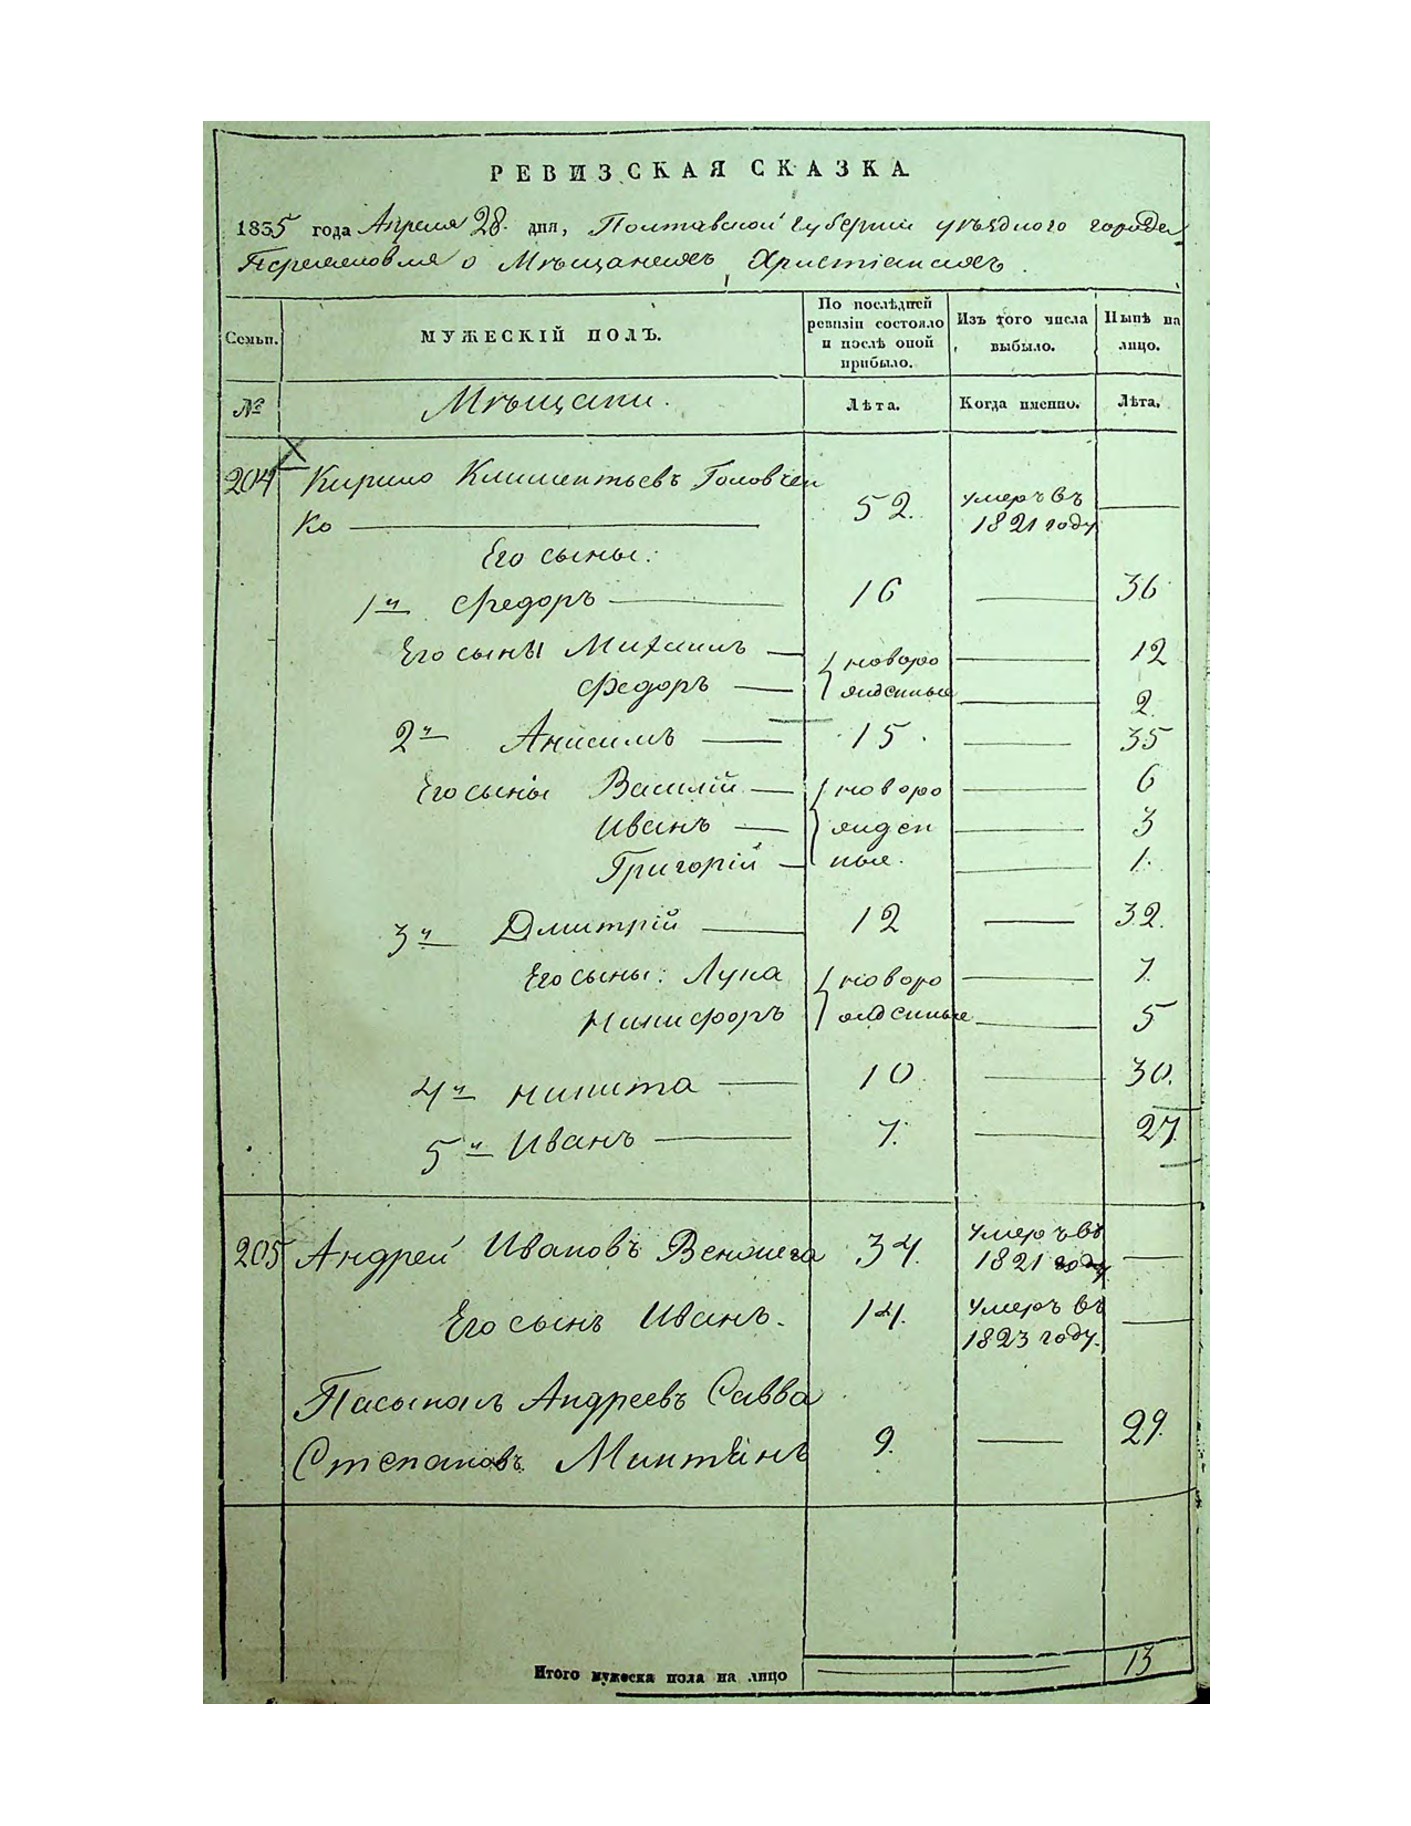 РЕВИЗСКАЯ СКАЗКА
1835 года Апреля 28. дня, Полтавской губернии уѣзднаго города
Переяславля о Мѣщанахъ Христіанахъ.
Семьи. МУЖЕСКІЙ ПОЛЪ. По послѣдней ревизіи состояло и послѣ оной прибыло. Изъ того числа выбыло. Нынѣ на лицо.
№ Мѣщани. Лѣта. Когда именно. Лѣта.
204 Кирило Климентьевъ Головчен
ко 52. умеръ въ 1821 году
Его сыны:
1й Федоръ 16 36
Его сыны Михаилъ новоро 12
Федоръ жденные 2
2й Анисимъ 15. 35
Его сыны Василій новоро 6
Иванъ жден 3
Григорій ные. 1.
3й Дмитрій 12 32.
Его сыны: Лука новоро 7.
Никифоръ жденные 5
4й Никита 10. 30.
5й Иванъ 7. 27.
205 Андрей Ивановъ 34. умеръ въ 1821 году
Его сынъ Иванъ. 14. умеръ въ 1823 году.
Пасынокъ Андреевъ Савва
Степановъ 9. 29.
Итого мужеска пола на лицо 13